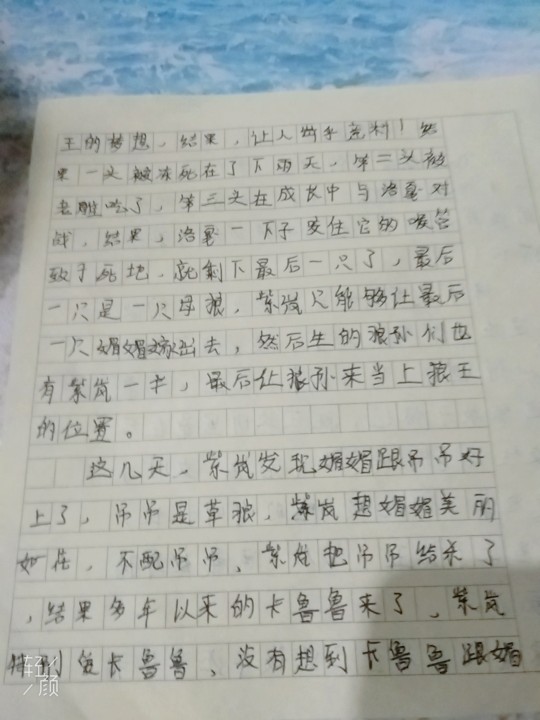 王的梦想，结果，让人出乎意料！结
果一头被冻死在了下雨天，第二头被
老雕吃了，第三头在成长中与洛戛对
战，结果，洛戛一下子咬住它的喉管
致于死地，就剩下最后一只了，最后
一只是一只母狼，紫岚只能够让最后
一只媚媚嫁出去，然后生的狼孙们也
有紫岚一半，最后让狼孙来当上狼王
的位置。
这几天，紫岚发现媚媚跟吊吊好
上了，吊吊是草狼，紫岚想媚媚美丽
如花，不配吊吊，紫岚把吊吊给杀了
，结果多年以来的卡鲁鲁来了，紫岚
特别 卡鲁鲁，没有想到卡鲁鲁跟媚
轻颜